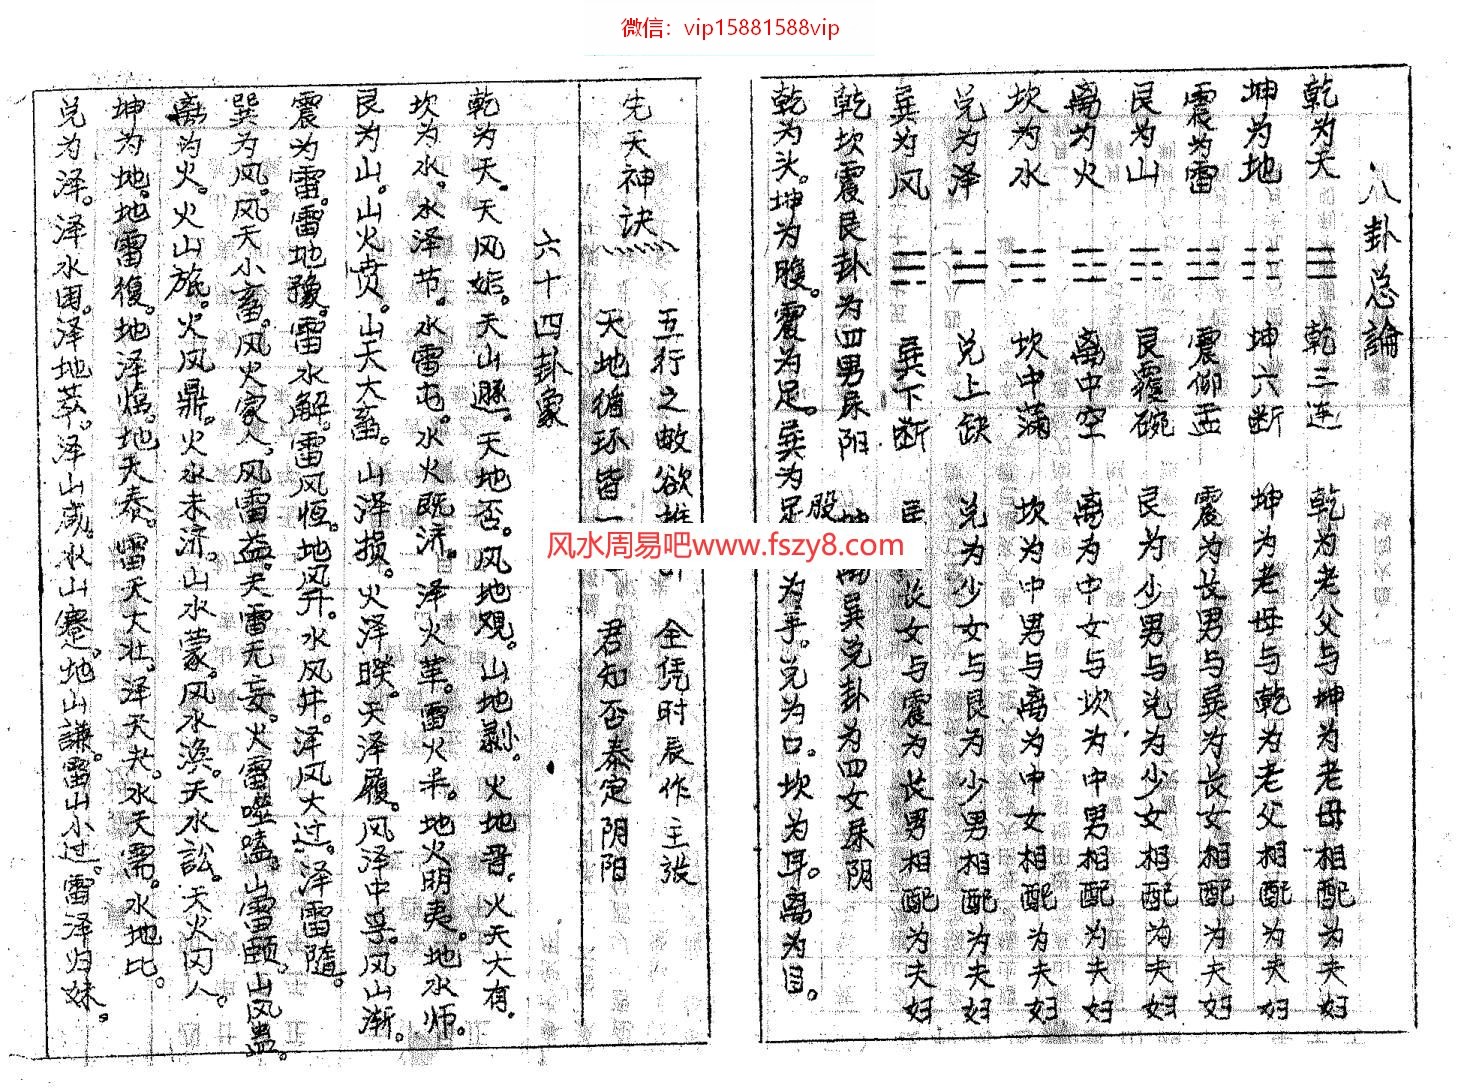 微信：vip15881588vip
八卦总論
乾为天 ☰ 乾三连 乾为老父与坤为老母相配为夫妇
坤为地 ☷ 坤六断 坤为老母与乾为老父相配为夫妇
震为雷 ☳ 震仰盂 震为长男与巽为长女相配为夫妇
艮为山 ☶ 艮覆碗 艮为少男与兑为少女相配为夫妇
离为火 ☲ 离中空 离为中女与坎为中男相配为夫妇
坎为水 ☵ 坎中满 坎为中男与离为中女相配为夫妇
兑为泽 ☱ 兑上缺 兑为少女与艮为少男相配为夫妇
巽为风 ☴ 巽下断 长女与震为长男相配为夫妇
乾坎震艮卦为四男属阳 离巽兑卦为四女属阴
乾为头。坤为腹。震为足。巽为股 为手。兑为口。坎为耳。离为目。
风水周易吧www.fszy8.com
先天神诀
五行之敵欲推 全凭时辰作主張
天地循环皆一 君知否泰定阴阳
六十四卦象
乾为天。天风姤。天山遯。天地否。风地观。山地剥。火地晋。火天大有。
坎为水。水泽节。水雷屯。水火既济。泽火革。雷火丰。地火明夷。地水师。
艮为山。山火贲。山天大畜。山泽损。火泽睽。天泽履。风泽中孚。风山渐。
震为雷。雷地豫。雷水解。雷风恒。地风升。水风井。泽风大过。泽雷隨。
巽为风。风天小畜。风火家人。风雷益。天雷无妄。火雷噬嗑。山雷頤。山风蛊。
离为火。火山旅。火风鼎。火水未济。山水蒙。风水涣。天水訟。天火同人。
坤为地。地雷復。地泽临。地天泰。雷天大壮。泽天夬。水天需。水地比。
兑为泽。泽水困。泽地萃。泽山咸。水山蹇。地山謙。雷山小过。雷泽归妹。